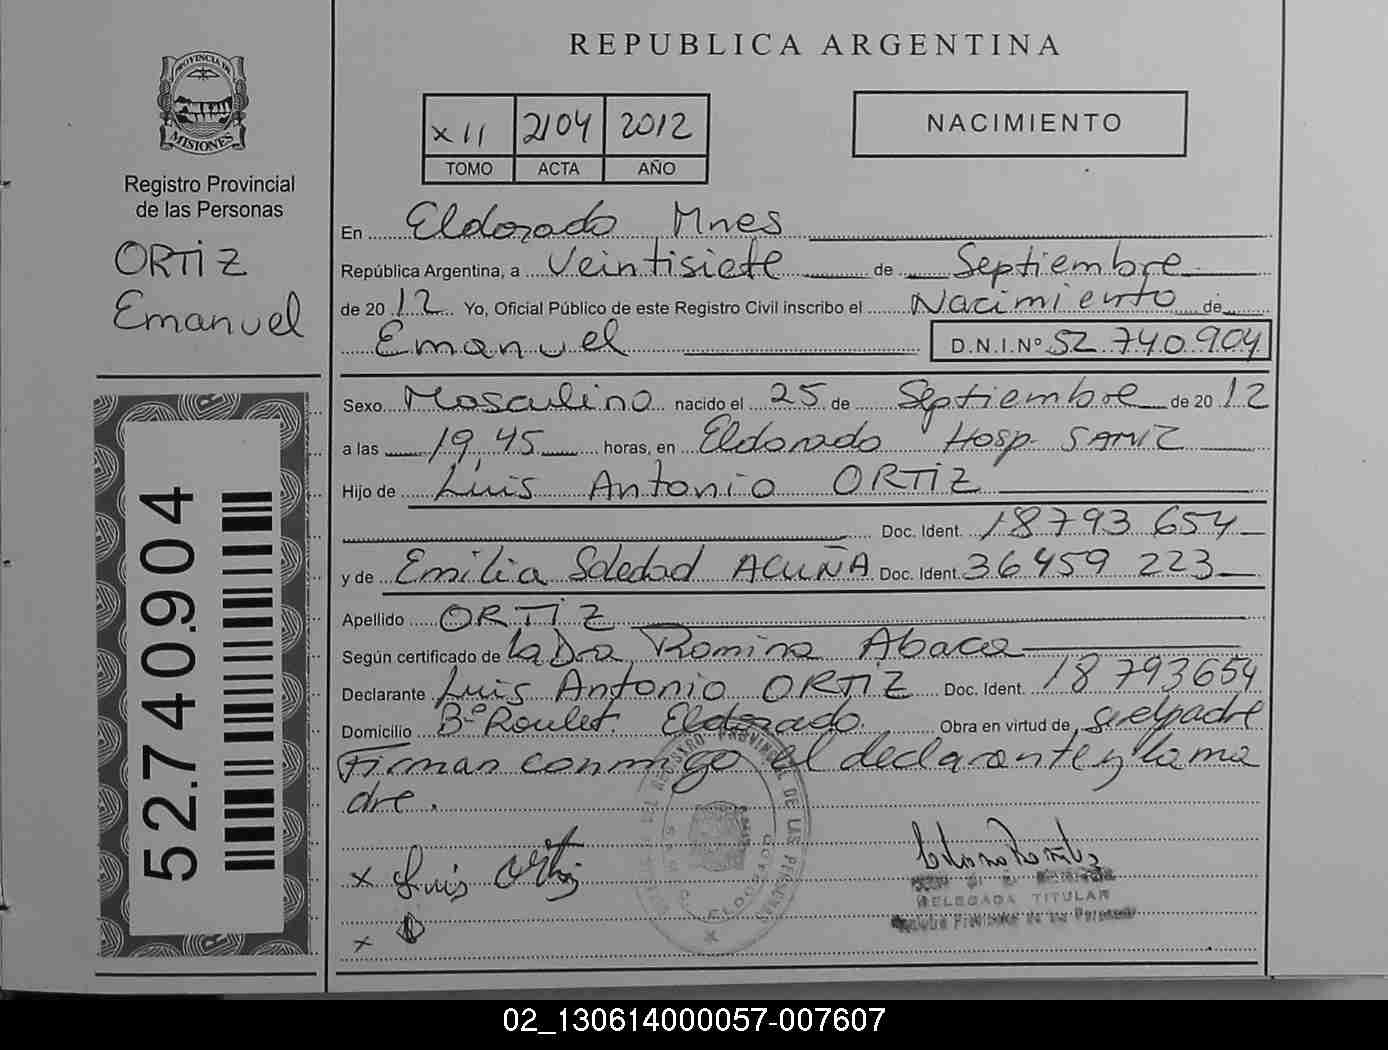 REPUBLICA ARGENTINA
PROVINCIA DE
MISIONES
Registro Provincial
de las Personas
ORTiZ
Emanuel
52.740.904
XII 2104 2012
TOMO ACTA AÑO
NACIMIENTO
En Eldorado Mnes
República Argentina, a Veintisiete de Septiembre
de 2012 Yo, Oficial Público de este Registro Civil inscribo el Nacimiento de
Emanuel D.N.I.Nº 52.740.904
Sexo Masculino nacido el 25 de Septiembre de 2012
a las 19,45 horas, en Eldorado Hosp. SAMIC
Hijo de Luis Antonio ORTiZ
Doc. Ident. 18793654
y de Emilia Soledad ACUÑA Doc. Ident. 36459223
Apellido ORTiZ
Según certificado de la Dra Romina Abaca
Declarante Luis Antonio ORTiZ Doc. Ident. 18793654
Domicilio Bº Roulet. Eldorado. Obra en virtud de ser el padre
Firman conmigo el declarante y la ma
dre.
x Luis Ortiz
x
DELEGADA TITULAR
02_130614000057-007607